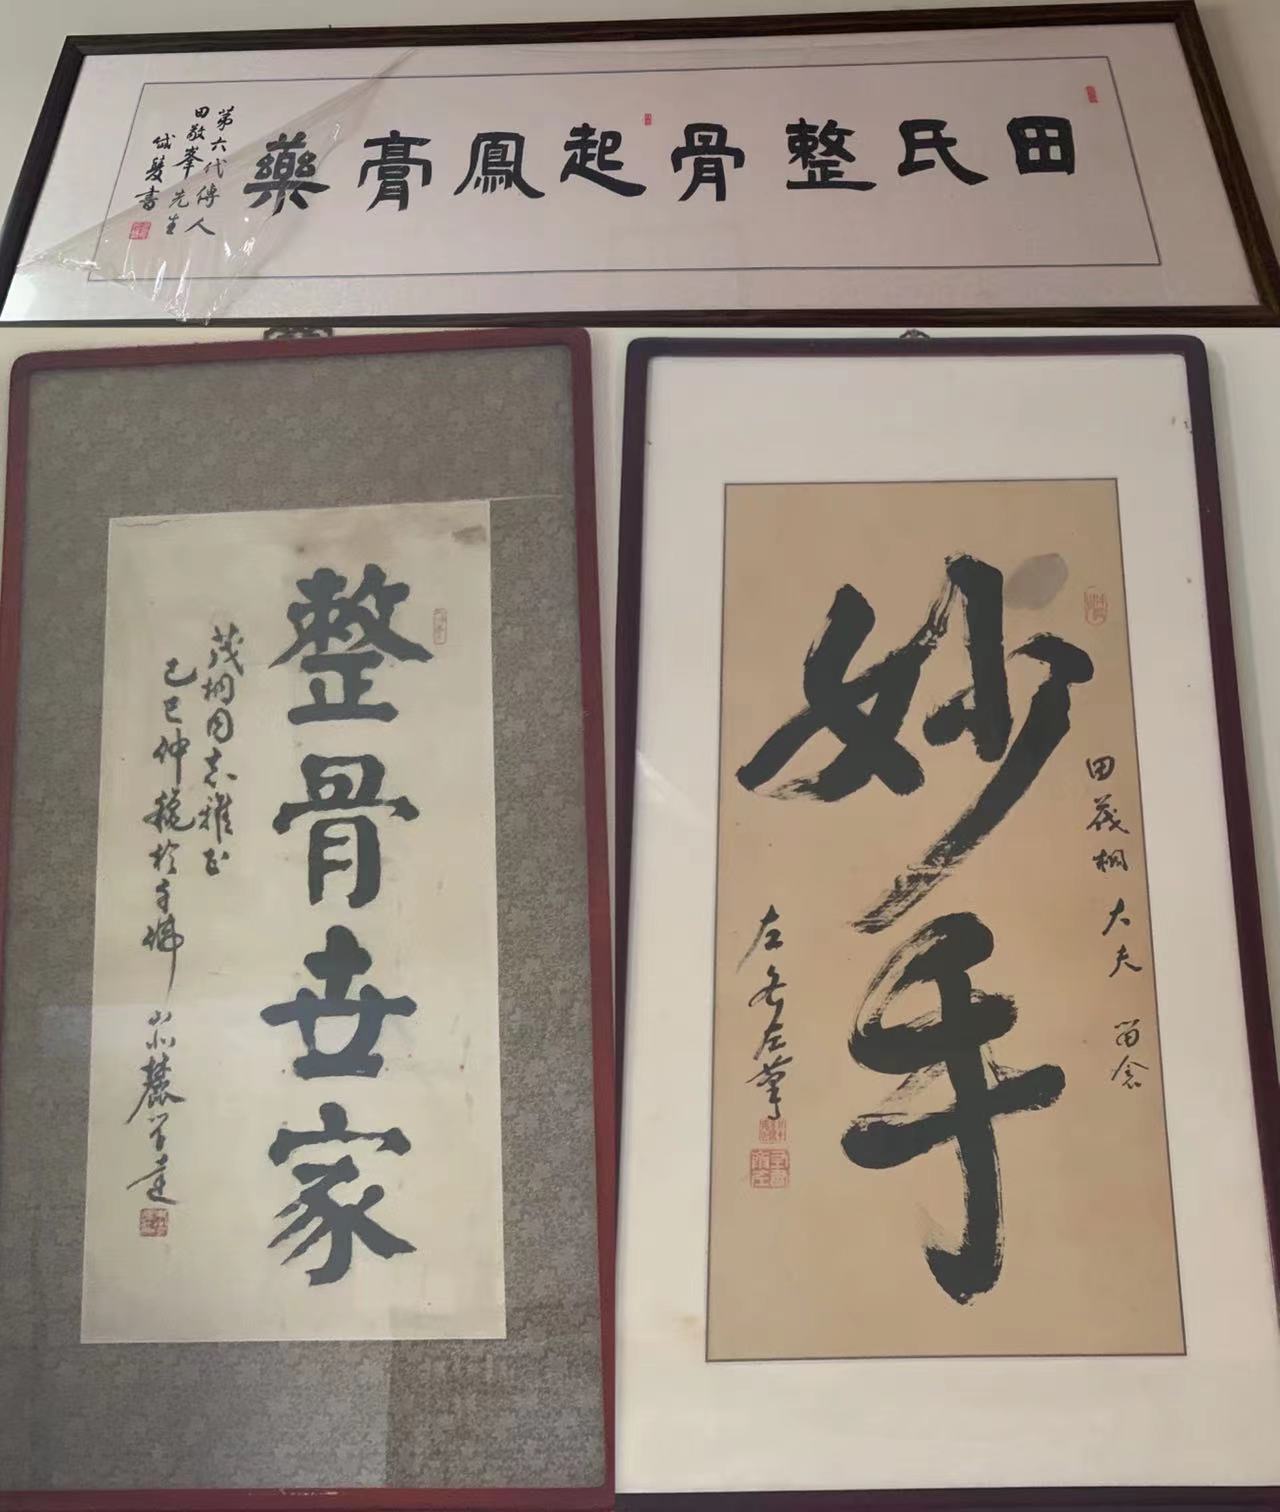 田氏整骨起鳳膏藥
第六代傳人
田敬峯先生
整骨世家
茂桐同志雅正
己巳仲秋於千佛山麓學達
田茂桐大夫留念
妙手
左笔